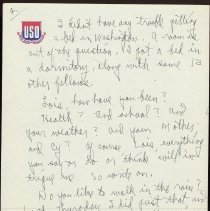 2.
USO
I didn't have any trouble getting
a bed in Washington. A room was
out of the question, I got a bed in
a dormitory, along with some 12
other fellows.
Lois, how have you been?
Health? And school? And
your weather? And your Mother,
and Cy? Of course Lois everything
you say or do or think will
intrigue me. So write on.
Do you like to walk in the rain?
Last Thursday I did just that on